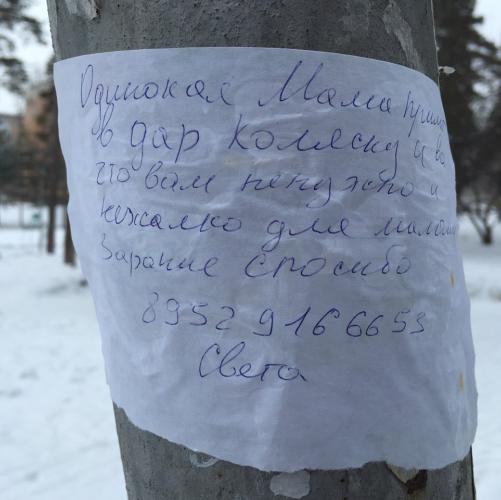 Одинокая Мама прим
в дар коляску и во
что вам ненужно и
нежалко для малыш
Зарание спосибо
89529166653
Света